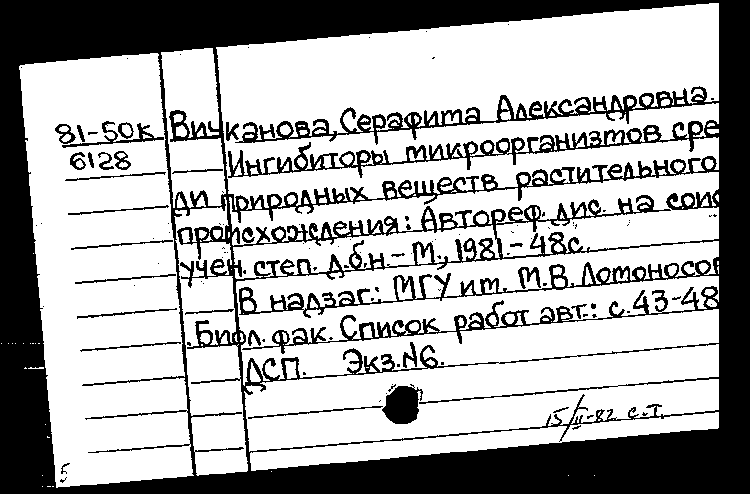 81-50к Вичканова, Серафима Александровна.
6128 Ингибиторы микроорганизмов сре
ди природных веществ растительного
происхождения: Автореф. дис. на соис
учен. степ. д.б.н. - М., 1981. - 48с.
В надзаг.: МГУ им. М.В. Ломоносов
. Биол. фак. Список работ авт.: с.43-48
ДСП. Экз.№6.
15/II-82 с.т.
5